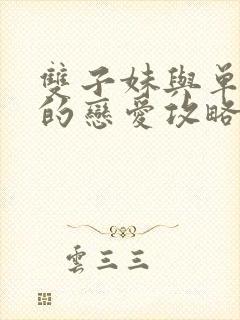 雙子妹與單
的戀愛攻略
雲三三